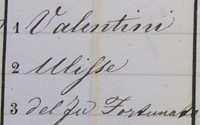 1 Valentini
2 Ulisse
3 del fu Fortunato